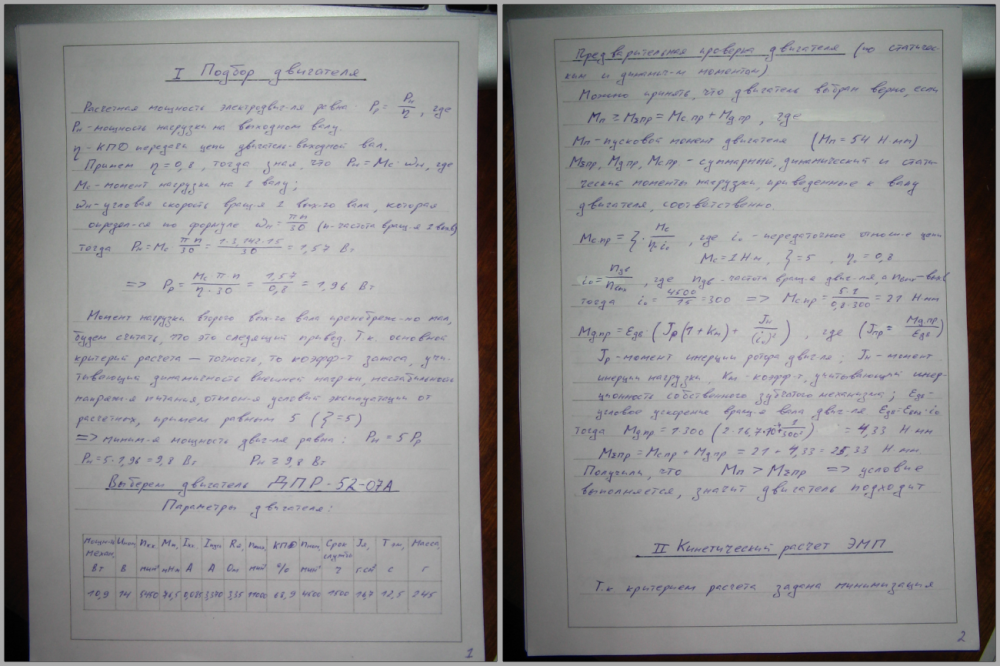 I Подбор двигателя
Расчетная мощность электродвиг-ля равна Pр = Pн/η, где
Pн - мощность нагрузки на выходном валу.
η - КПД передачи цепи двигатель-выходной вал.
Примем η=0,8, тогда зная, что Pн = Mс·ωн, где
Mс - момент нагрузки на 1 валу;
ωн - угловая скорость вращ-я 1 вых-го вала, которая
определ-ся по формуле ωн = πn/30 (n-частота вращ-я 1 вала)
тогда Pн = Mс πn/30 = 1·3,142·15/30 = 1,57 Вт
=> Pр = Mс π n/η·30 = 1,57/0,8 = 1,96 Вт
Момент нагрузки второго вых-го вала пренебреж-но мал,
будем считать, что это следящий привод. Т.к. основной
критерий расчета — точность, то коэфф-т запаса, учи-
тывающий динамичность внешней нагр-ки, нестабильность
напряж-я питания, отклон-я условий эксплуатации от
расчетных, примем равным 5 (ξ=5)
=> миним-я мощность двиг-ля равна: Pн = 5Pр
Pн=5·1,96=9,8 Вт Pн ≥ 9,8 Вт
Выберем двигатель ДПР-52-07А
Параметры двигателя:
Uпит, Mн, Rя, КПД Срок службы Jр, Масса,
Вт В мин⁻¹ нмм А А Ом мин⁻¹ % мин⁻¹ ч г.см² с г
10,9 14 4500 1500 245
1
Предварительная проверка двигателя (по статичес-
ким и динамич-м моментам)
Можно принять, что двигатель выбран верно, если
Mп ≥ MΣпр = Mс пр + Mд пр, где
Mп - пусковой момент двигателя (Mп = 54 Н·мм)
MΣпр, Mд пр, Mс пр - суммарный, динамический и стати-
ческий моменты нагрузки, приведенные к валу
двигателя, соответственно.
Mс пр = ξ· Mс/η₀ i₀, где i₀ - передаточное отнош-е цепи
Mс = 1 Нм, ξ=5, η₀ = 0,8
i₀ = nдв/nвых, где nдв - частота вращ-я двиг-ля, а nвых - вала
тогда i₀ = 4500/15 = 300 => Mс пр = 5·1/0,8·300 = 21 Н·мм
Mд пр = Eдв · (Jр(1+Kм) + Jн/(i₀)²), где (Jпр = Mд пр/Eдв)
Jр - момент инерции ротора двиг-ля; Jн - момент
инерции нагрузки. Kм - коэфф-т, учитывающий инер-
ционность собственного зубчатого механизма; Eдв -
угловое ускорение вращ-я вала двиг-ля Eдв = Eвых·i₀
тогда = 4,33 Н·мм
MΣпр = Mс пр + Mд пр = 21 + 4,33 = 25,33 Н·мм.
Получили, что Mп > MΣпр => условие
выполняется, значит двигатель подходит
II Кинетический расчет ЭМП
Т.к критерием расчета задана минимизация
2